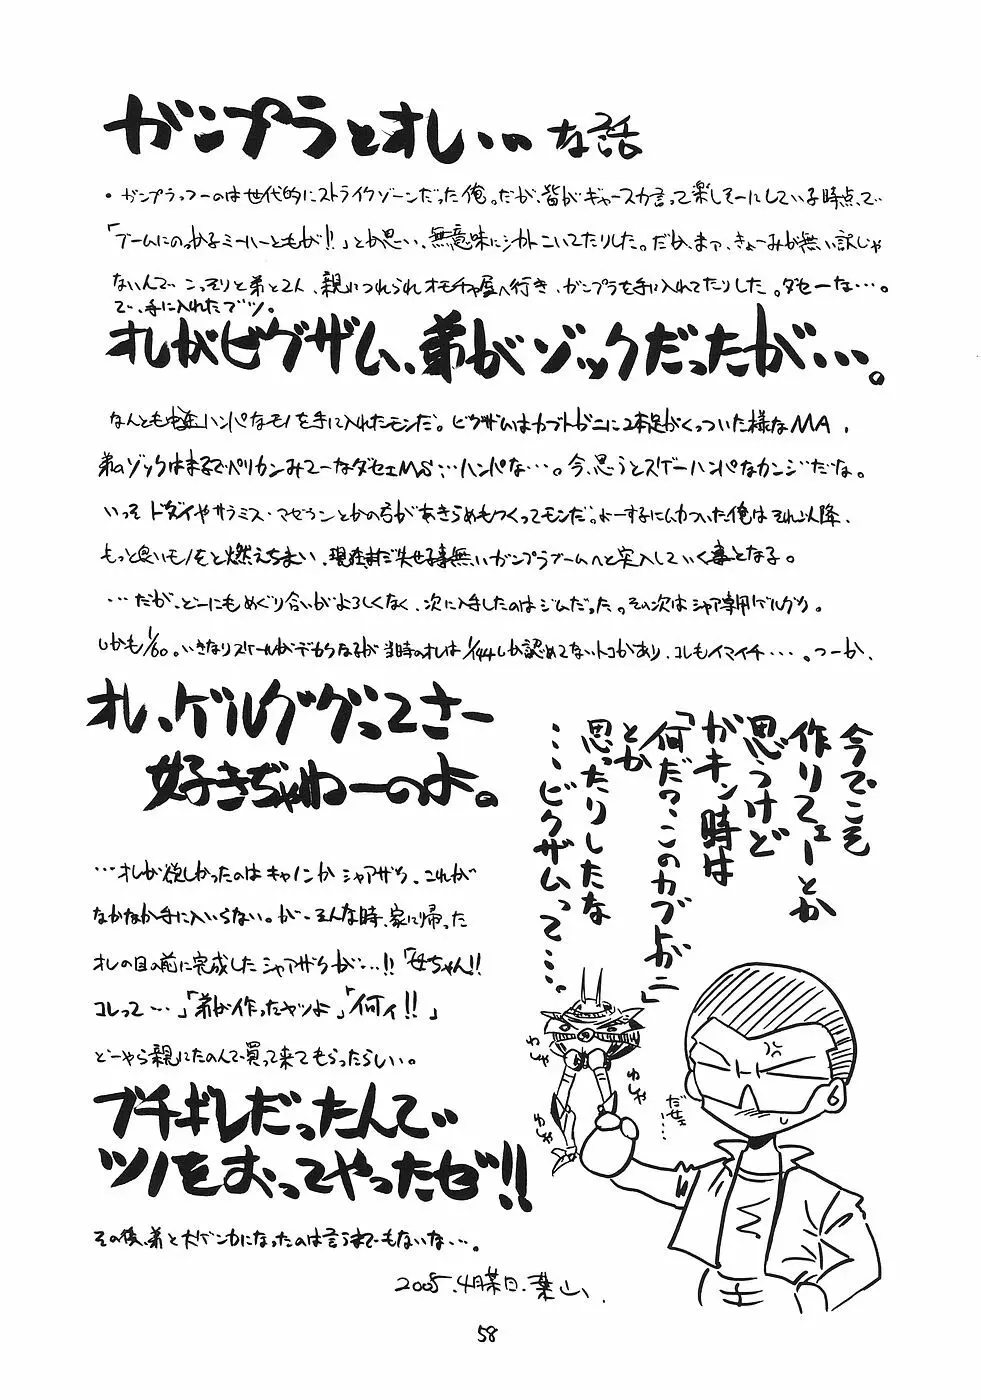 ガンプラとオレ…な話
・ガンプラっつーのは世代的にストライクゾーンだった俺。だが、皆がギャースカ言って楽しそーにしている時点で
「ブームにのっかるミーハーどもが!!」とか思い、無意味にシカトこいてたりした。だが、まァ、きょーみが無い訳じゃ
ないんで こっそりと弟と2人、親につれられオモチャ屋へ行き、ガンプラを手に入れてたりした。ダセーな…。
で、手に入れたブツ。
オレがビグザム、弟がゾックだったが…。
なんとも中途ハンパなモノを手に入れたモンだ。ビグザムはカブトガニに2本足がくっついた様なMA、
弟のゾックはまるでペリカンみてーなダセェMS…ハンパな…。今、思うとスゲーハンパなカンジだな。
いっそ ドダイやサラミス・マゼランとかの方があきらめもつくってモンだ。よーするにムカついた俺はそれ以降、
もっと良いモノをと燃えちまい、現在まだ失せる事無いガンプラブームへと突入していく事となる。
…だが、どーにもめぐり合いがよろしくなく、次に入手したのはジムだった。その次はシャア専用ゲルググ。
しかも1/60。いきなりスケールがデカくなるが当時のオレは1/144しか認めてないトコがあり、コレもイマイチ…。つーか、
オレ、ゲルググってさー
好きぢゃねーのよ。
…オレが欲しかったのはキャノンかシャアザク、これが
なかなか手に入いらない。が、そんな時、家に帰った
オレの目の前に完成したシャアザクが…!!「母ちゃん!!
コレって…」「弟が作ったヤツよ」「何ィ!!」
どーやら親にたのんで買って来てもらったらしい。
ブチギレだったんで
ツノをおってやったゼ!!
その後、弟と大ゲンカになったのは言うまでもないな…。
2005.4月某日.葉山、
今でこそ
作りフェーとか
思うけど
ガキン時は
「何だ?このカブトガニ」
とか
思ったりしたな
…ビグザムって…。
わしゃ
わしゃ
わしゃ
わしゃ
ダセェ…
58